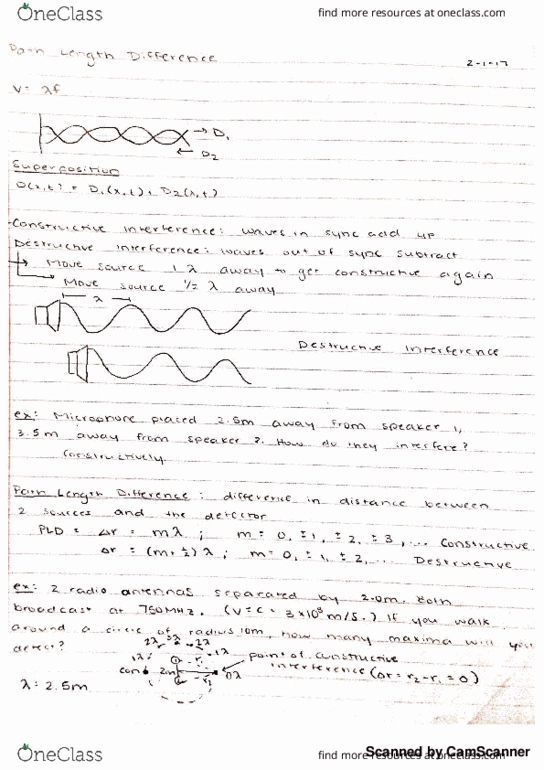 OneClass
find more resources at oneclass.com
Path Length Difference
2-1-17
v = λf
→ D₁
← D₂
Superposition
D(x,t) = D₁(x,t) + D₂(x,t)
-Constructive interference: waves in sync add up
Destructive interference: waves out of sync subtract
→ Move source 1 λ away to get constructive again
→ Move source 1/2 λ away
λ
Destructive interference
ex: Microphone placed 2.5m away from speaker 1,
3.5m away from speaker 2. How do they interfere?
Constructively
Path Length Difference: difference in distance between
2 sources and the detector
PLD = Δr = mλ ; m = 0, ±1, ±2, ±3, ... Constructive
Δr = (m + 1/2) λ ; m = 0, ±1, ±2, ... Destructive
ex: 2 radio antennas separated by 2.0m. Both
broadcast at 750MHz. (v = c = 3×10⁸ m/s.) If you walk
around a circle of radius 10m, how many maxima will you
detect?
2λ
2λ
1λ
1λ
point of constructive
interference (Δr = r₂ - r₁ = 0)
con
2m
r₁
r₂
0λ
λ = 2.5m
OneClass
find more resources at oneclass.com
Scanned by CamScanner